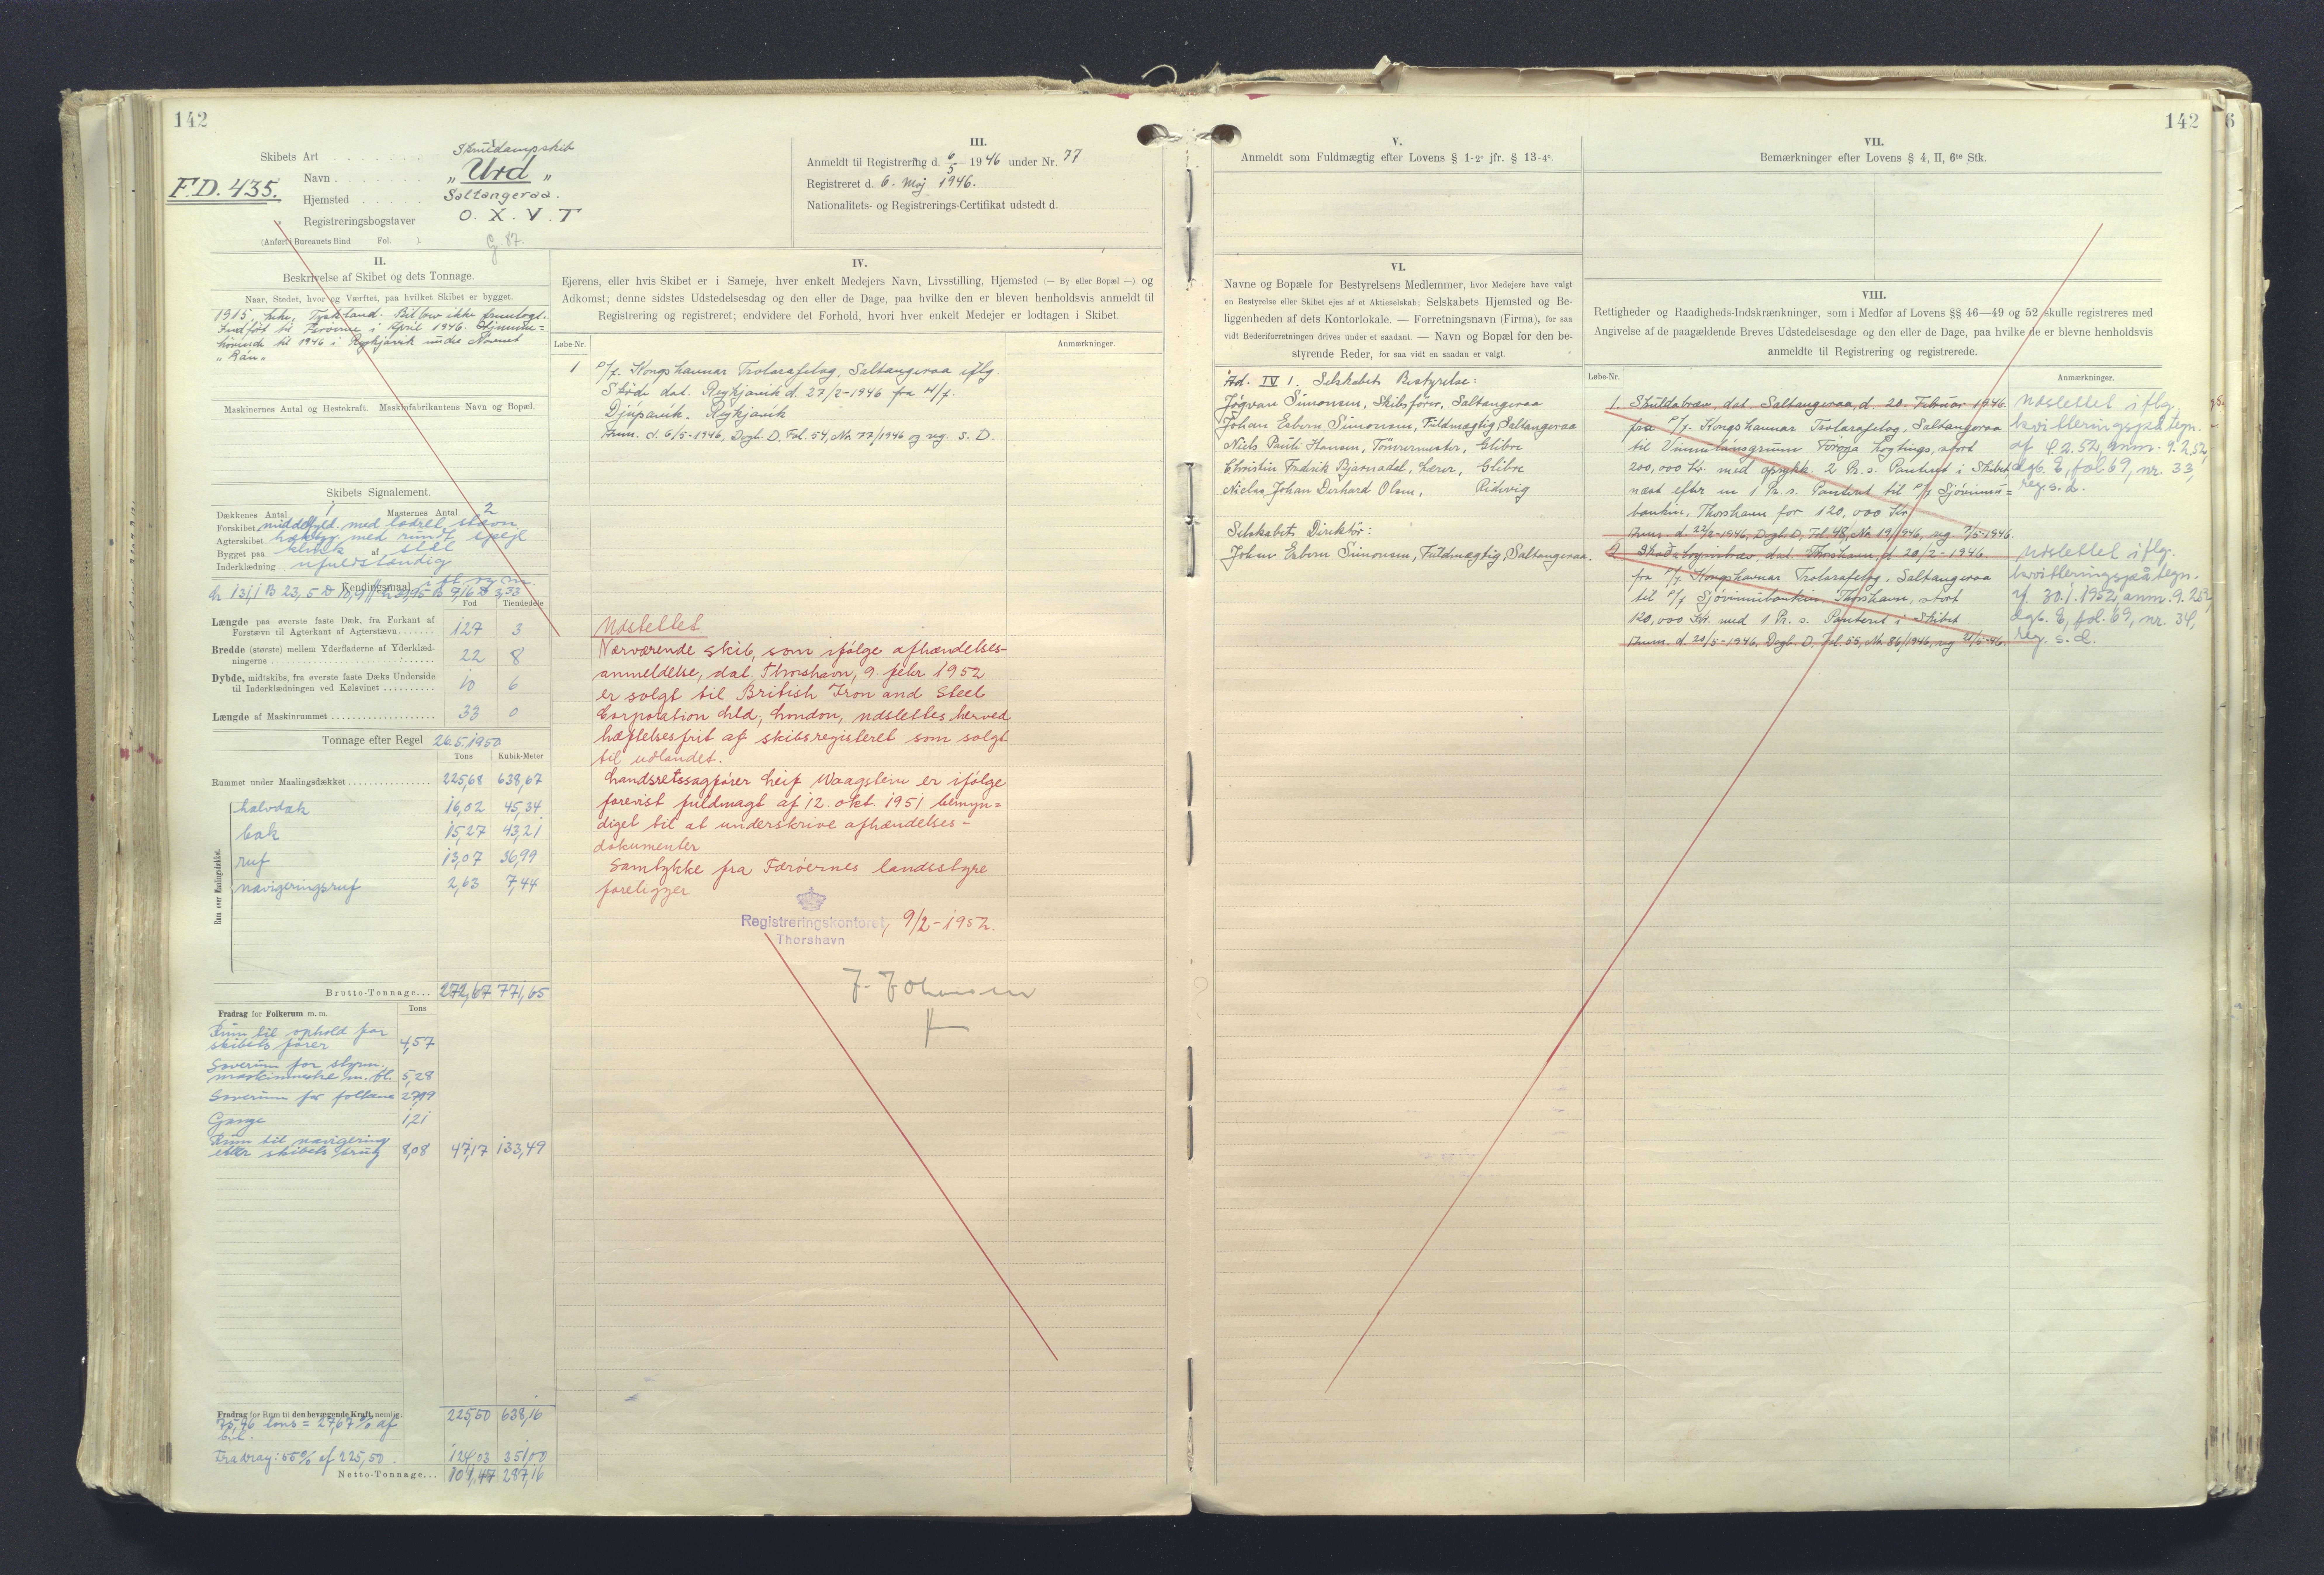 142
Skibets Art . . . . . . . Skruedampskib
F.D. 435.
Navn . . . . . . . . „ Urd „
Hjemsted . . . . . . Saltangeraa.
Registreringsbogstaver O. X. V. T
(Anført i Bureauets Bind Fol. )
G 87.
III.
Anmeldt til Registrering d. 6/5 1946 under Nr. 77
Registreret d. 6. Maj 1946.
Nationalitets- og Registrerings-Certifikat udstedt d.
II.
Beskrivelse af Skibet og dets Tonnage.
Naar, Stedet, hvor og Værftet, paa hvilket Skibet er bygget.
1915, Lehe, Tyskland. Bilbrev ikke fremlagt.
Indført til Færøerne i April 1946. Hjemme=
hørende til 1946 i Reykjavik under Navnet
„Rán„
Maskinernes Antal og Hestekraft. Maskinfabrikantens Navn og Bopæl.
Skibets Signalement.
Dækkenes Antal 1 Masternes Antal 2
Forskibet middelfyld. med lodret stævn
Agterskibet hækbyg. med rundt spejl
Bygget paa klink af stål
Inderklædning ufuldstændig
Kendingsmaal i fl. reg. m.
L 131,1 B 23,5 D 10,9 // L 39,95 B 7,16 D 3,33
Fod Tiendedele
Længde paa øverste faste Dæk, fra Forkant af
Forstævn til Agterkant af Agterstævn . . . . . . . 127 3
Bredde (største) mellem Yderfladerne af Yderklæd-
ningerne . . . . . . 22 8
Dybde, midtskibs, fra øverste faste Dæks Underside
til Inderklædningen ved Kølsvinet . . . . . . . . . . 10 6
Længde af Maskinrummet . . . . . . . . . . . . . . . . . . . . . 33 0
Tonnage efter Regel 26.5.1950
Tons Kubik-Meter
Rummet under Maalingsdækket . . . . . . . . . . . . . . . . 225,68 638,67
Rum over Maalingsdækket.
halvdæk 16,02 45,34
bak 15,27 43,21
ruf 13,07 36,99
navigeringsruf 2,63 7,44
Brutto-Tonnage . . . 272,67 771,65
Fradrag for Folkerum m. m. Tons
Rum til ophold for
skibets fører 4,57
Soverum for styrm.,
maskinmestre m. fl. 5,28
Soverum for folkene 27,99
Gange 1,21
Rum til navigering
eller skibets brug 8,08 47,17 133,49
Fradrag for Rum til den bevægende Kraft, nemlig 225,50 638,16
75,46 tons = 27,67 % af
btl.
Fradrag: 55 % af 225,50. 124,03 351,00
Netto-Tonnage . . . 101,47 287,16
IV.
Ejerens, eller hvis Skibet er i Sameje, hver enkelt Medejers Navn, Livsstilling, Hjemsted (— By eller Bopæl —) og
Adkomst; denne sidstes Udstedelsesdag og den eller de Dage, paa hvilke den er bleven henholdsvis anmeldt til
Registrering og registreret; endvidere det Forhold, hvori hver enkelt Medejer er lodtagen i Skibet.
Løbe-Nr. Anmærkninger.
1 P/f. Kongshavnar Trolarafelag, Saltangeraa iflg.
Skøde dat. Reykjavik d. 27/2-1946 fra H/f.
Djúpavik. Reykjavik
Anm. d. 6/5-1946, Dagb. D. Fol. 54, Nr. 77/1946 og reg. s. D.
Udslettet.
Nærværende skib, som ifølge afhændelses-
anmeldelse, dat. Thorshavn, 9. febr 1952
er solgt til British Iron and Steel
Corporation Ltd, London, udslettes herved
hæftelsesfrit af skibsregisteret som solgt
til udlandet.
Landsretssagfører Leif Waagstein er ifølge
forevist fuldmagt af 12. okt. 1951 bemyn=
diget til at underskrive afhændelses-
dokumenter
Samtykke fra Færøernes landsstyre
foreligger
Registreringskontoret, 9/2-1952.
Thorshavn
142
6
V.
Anmeldt som Fuldmægtig efter Lovens § 1-2° jfr. § 13-4°.
VI.
Navne og Bopæle for Bestyrelsens Medlemmer, hvor Medejere have valgt
en Bestyrelse eller Skibet ejes af et Aktieselskab; Selskabets Hjemsted og Be-
liggenheden af dets Kontorlokale. — Forretningsnavn (Firma), for saa
vidt Rederiforretningen drives under et saadant. — Navn og Bopæl for den be-
styrende Reder, for saa vidt en saadan er valgt.
Ad. IV 1. Selskabets Bestyrelse:
Jógvan Simonsen, Skibsfører, Saltangeraa
Johan Esbern Simonsen, Fuldmægtig Saltangeraa
Niels Pauli Hansen, Tömrermester, Glibre
Christin Fredrik Bjarnadal, Lærer, Glibre
Niclas Johan Derhard Olsen, Ridevig
Selskabets Direktör:
Johan Esbern Simonsen, Fuldmægtig, Saltangeraa.
VII.
Bemærkninger efter Lovens § 4, II, 6te Stk.
VIII.
Rettigheder og Raadigheds-Indskrænkninger, som i Medfør af Lovens §§ 46—49 og 52 skulle registreres med
Angivelse af de paagældende Breves Udstedelsesdage og den eller de Dage, paa hvilke de er blevne henholdsvis
anmeldte til Registrering og registrerede.
Løbe-Nr. Anmærkninger.
1. Skuldabræv, dat. Saltangeraa, d. 20. Februar 1946.
fra P/f. Kongshavnar Trolarafelag, Saltangeraa
til Vinnulánsgrunn Föroya Lögtings, stort
200,000 Kr. med oprykk. 2 Pr. s. Panteret i Skibet,
næst efter en 1 Pr. s. Panteret til P/f Sjóvinnu=
bankin, Thorshavn for 120,000 Kr.
Anm. d. 22/2-1946, Dagb. D, Fol 48, Nr. 19/1946, reg. 7/5-1946.
udslettet iflg.
kvitteringspåtegn.
af 4.2.52, anm. 9.2.52,
dgb. E, fol 69, nr. 33,
reg. s. d.
2 Skaðaloysisbræv, dat. Thorshavn, d. 20/2-1946
fra P/f. Kongshavnar Trolarafelag, Saltangeraa
til P/f Sjóvinnubankin, Thorshavn, stort
120,000 Kr. med 1 Pr. s. Panteret i Skibet
Anm. d. 20/5-1946, Dagb. D, Fol. 55, Nr. 86/1946, reg 21/5-46.
udslettet iflg.
kvitteringspåtegn.
af 30.1.1952, anm. 9.2.52,
dgb. E, fol. 69, nr. 34,
reg. s. d.